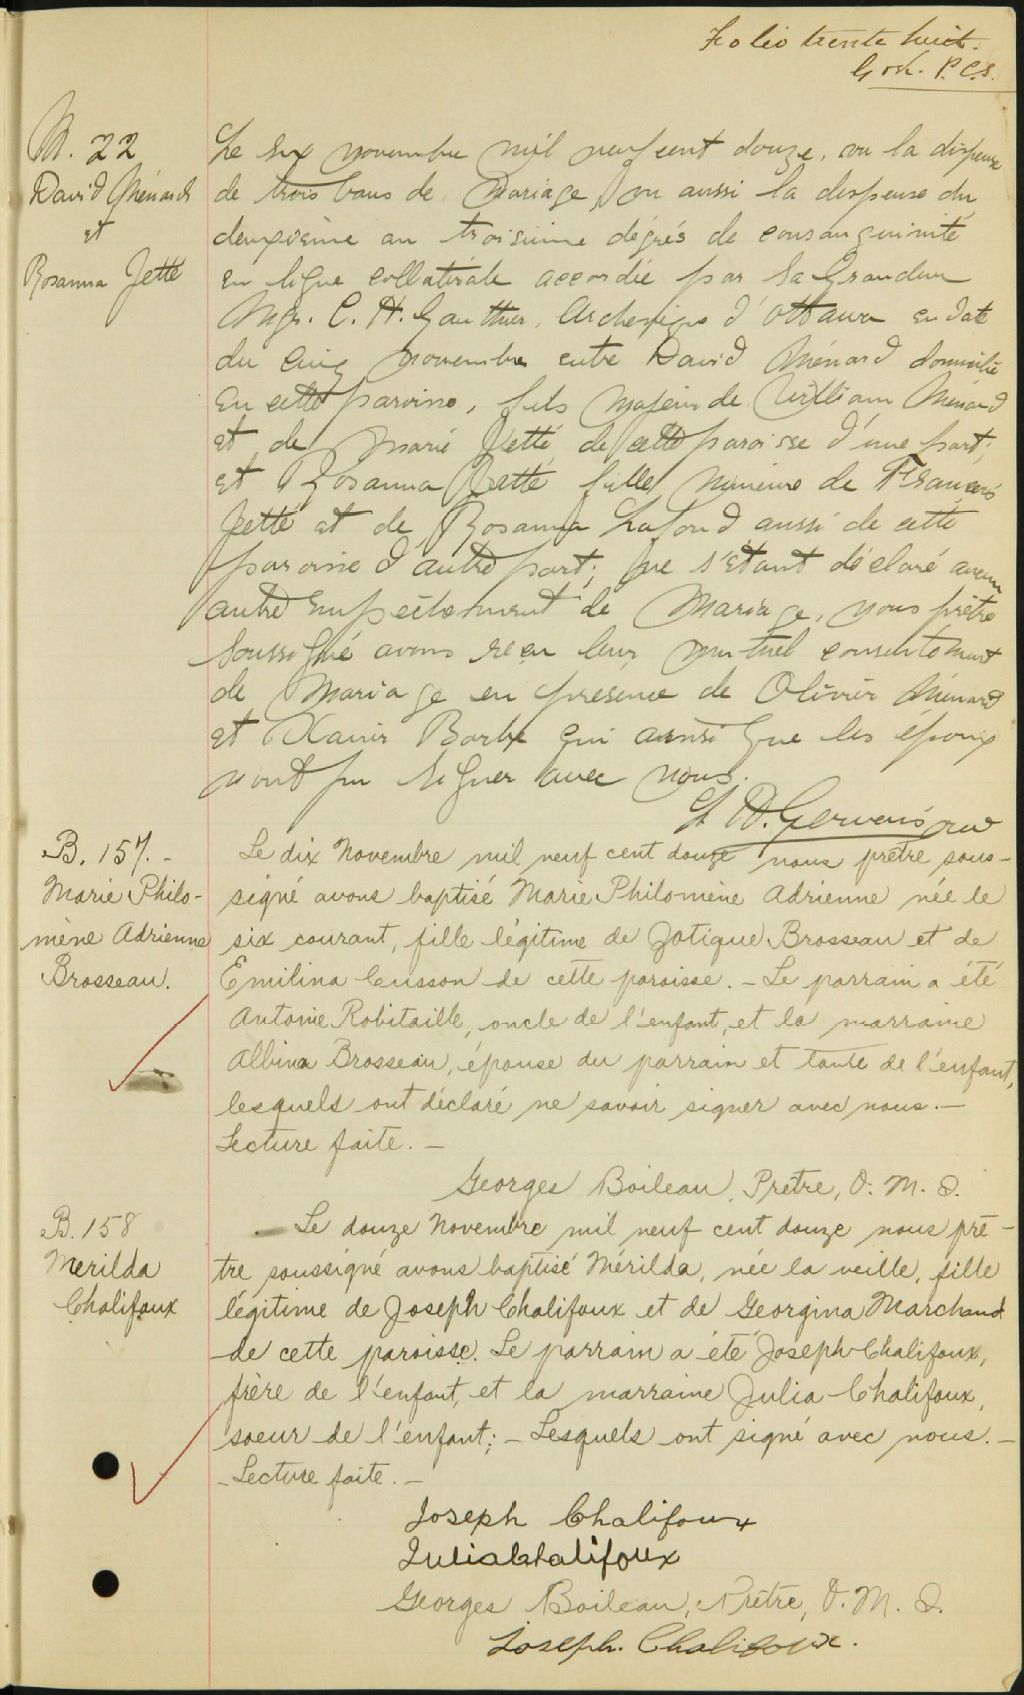 Folio trente huit.
G. P.C.S.
M. 22
David Ménard
et
Rosanna Jetté
Le six novembre mil neuf cent douze, vu la dispense
de trois bans de mariage, vu aussi la dispense du
deuxième au troisième dégrés de consanguinité
en ligne collatérale accordée par Sa Grandeur
Mgr. C. H. Gauthier, Archevêque d'Ottawa en date
du cinq novembre entre David Ménard domicilié
en cette paroisse, fils majeur de William Ménard
et de Marie Jetté de cette paroisse d'une part;
et Rosanna Jetté fille mineure de François
Jetté et de Rosanna Lafond aussi de cette
paroisse d'autre part; ne s'étant déclaré aucun
autre empêchement de mariage, nous prêtre
soussigné avons reçu leur mutuel consentement
de mariage en présence de Olivier Ménard
et Xavier Barbe qui ainsi que les époux
n'ont pu signer avec nous.
Gervais ptre
B. 157. -
Marie Philo-
mène Adrienne
Brosseau.
Le dix Novembre mil neuf cent douze nous prêtre sous-
signé avons baptisé Marie Philomène Adrienne née le
six courant, fille légitime de Zotique Brosseau et de
Emilina Cusson de cette paroisse. - Le parrain a été
Antoine Robitaille, oncle de l'enfant, et la marraine
Albina Brosseau, épouse du parrain et tante de l'enfant,
lesquels ont déclaré ne savoir signer avec nous. -
Lecture faite. -
Georges Boileau, Prêtre, O. M. I.
B. 158
Merilda
Chalifoux
Le douze Novembre mil neuf cent douze nous prê-
tre soussigné avons baptisé Mérilda, née la veille, fille
légitime de Joseph Chalifoux et de Georgina Marchand
de cette paroisse. Le parrain a été Joseph Chalifoux,
frère de l'enfant, et la marraine Julia Chalifoux,
soeur de l'enfant; - Lesquels ont signé avec nous. -
- Lecture faite. -
Joseph Chalifoux
Julia Chalifoux
Georges Boileau, Prêtre, O. M. I.
Joseph. Chalifoux.